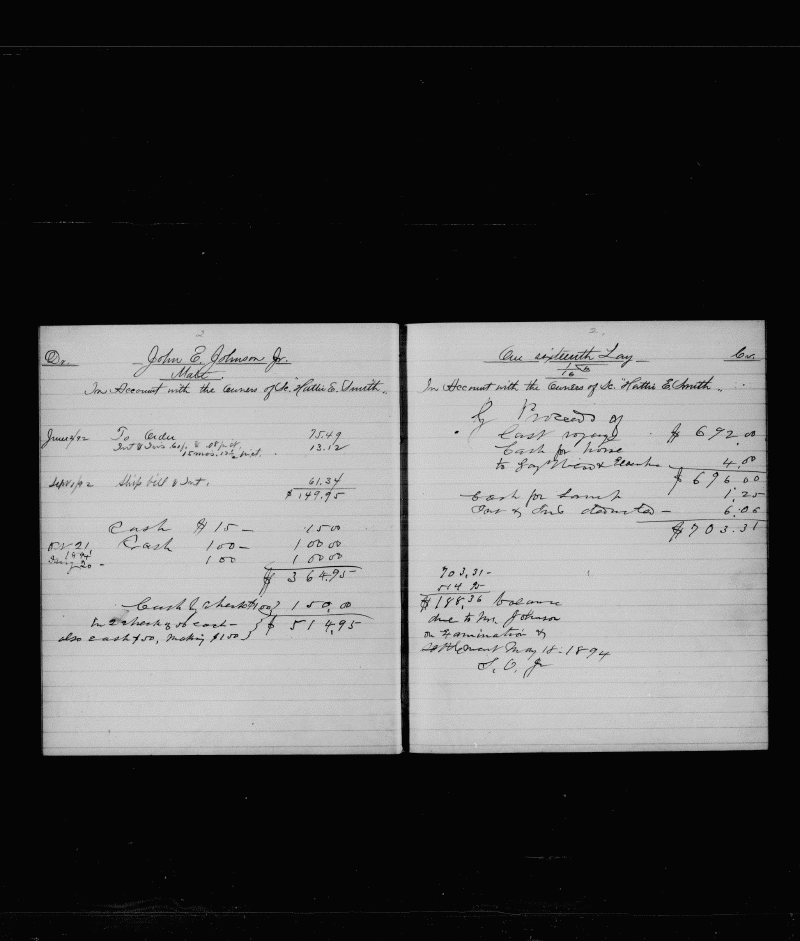 2
Dr. John E. Johnson Jr.
Mate.
In Account with the owners of Sc. "Hattie E. Smith"
June 4/92 To Order 75.49
Int & Ins Cos, & 13.12
15 mos.
Sept 1/92 Ship bill & Int, 61.34
$ 149.95
Cash $15— 15 00
21 Cash 100— 100 00
1894
20— 100 100 00
$ 364.95
Cash & check $100 150,00
in 2 checks 50 each—
also cash $50, making $150 } $ 514,95
2.
One sixteenth Lay Cr.
1/16
In Account with the owners of Sc. "Hattie E. Smith"
By Proceeds of
Last voyage $ 692,00
Cash for horse
to 4.00
$ 696 00
Cash for 1,25
Int & Ins deducted— 6.06
$703.31
703,31—
514 95
$188,36 balance
due to Mr. Johnson
on Examination &
Settlement May 18—1894